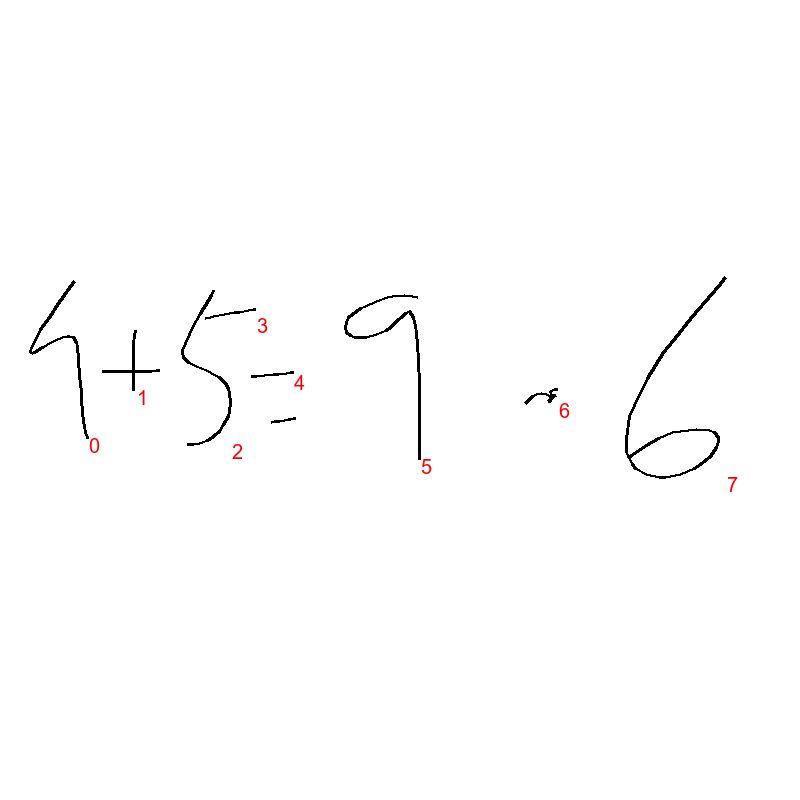 4+5=9 6
0 1 2 3 4 5 6 7